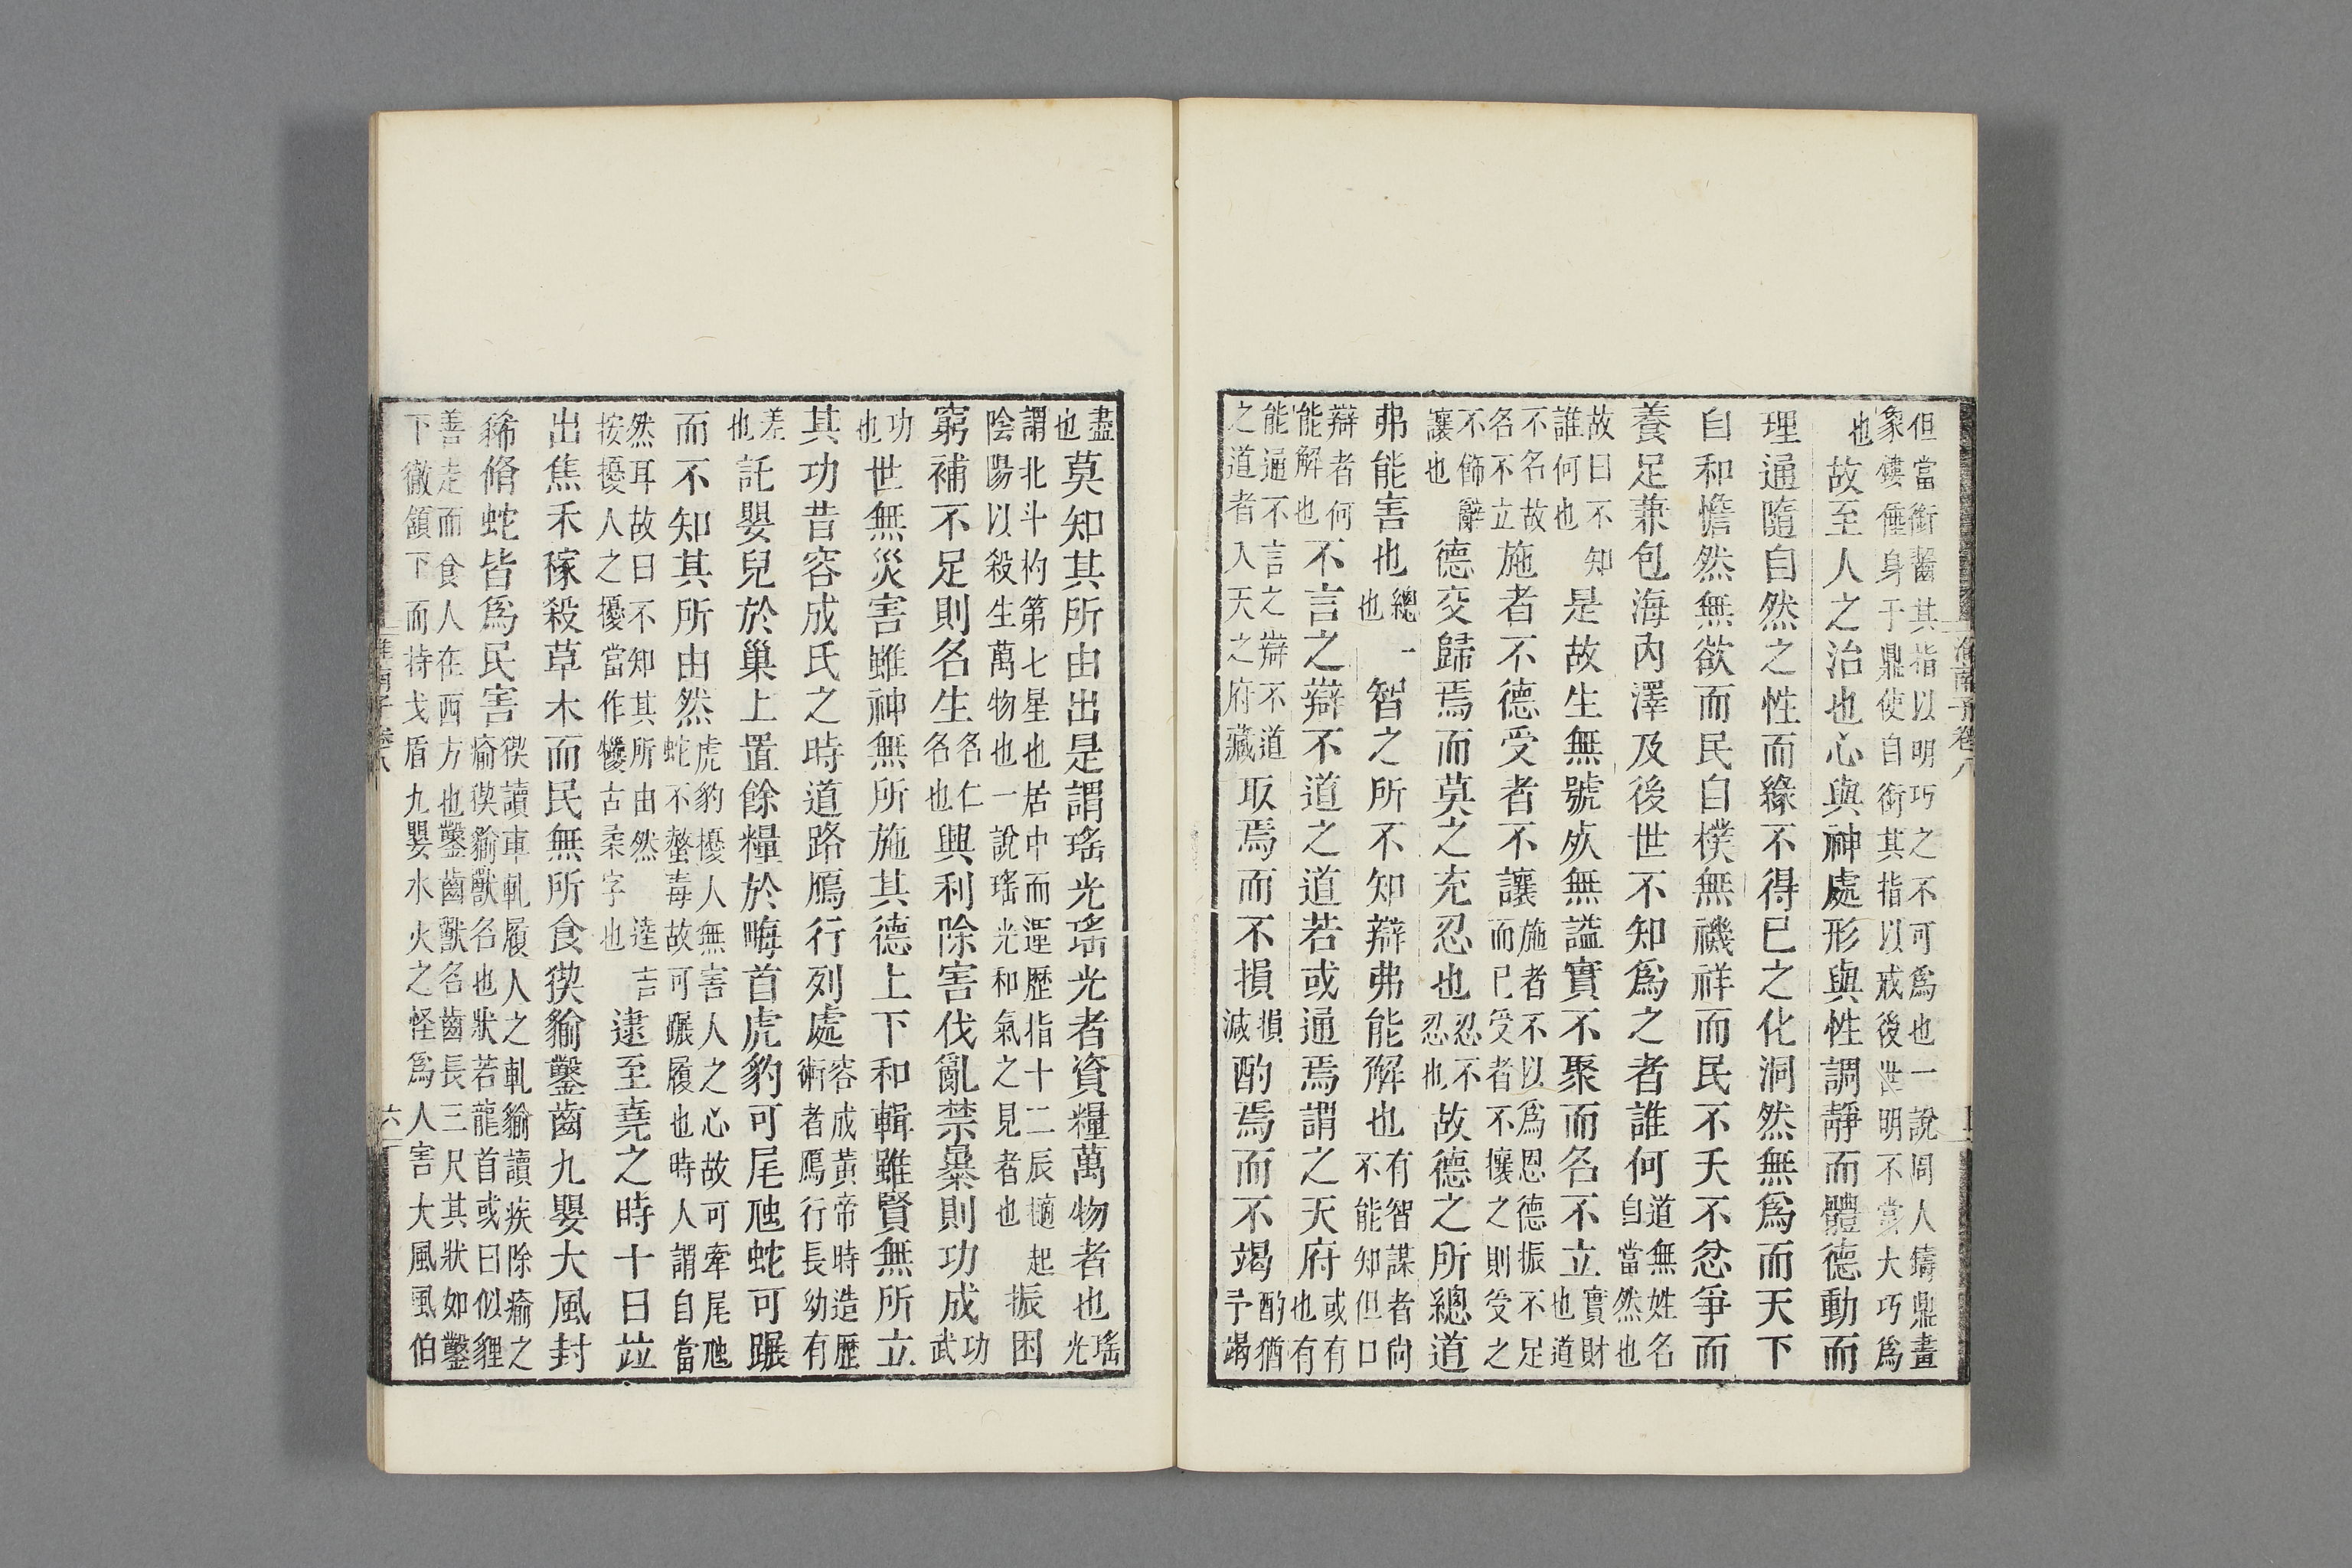 但當銜齧其指以明巧之不可爲也一說周人鑄鼎畫
象鏤倕身于鼎使自銜其指以戒後世明不當大巧爲
也故至人之治也心與神處形與性調靜而體德動而
理通隨自然之性而緣不得已之化洞然無爲而天下
自和憺然無欲而民自樸無禨祥而民不夭不忿爭而
養足兼包海內澤及後世不知爲之者誰何道無姓名自當然也
故曰不知誰何也是故生無號死無謚實不聚而名不立實財也道
不名故名不立施者不德受者不讓施者不以爲恩德振不足而已受者不攘之則受之
不飾辭讓也德交歸焉而莫之充忍也忍不忍也故德之所總道
弗能害也總一也智之所不知辯弗能解也有智謀者尙不能知但口
辯者何能解也不言之辯不道之道若或通焉謂之天府或有也有
能通不言之辯不道之道者入天之府藏取焉而不損損減酌焉而不竭酌猶予竭
淮南子卷八
盡也莫知其所由出是謂瑤光瑤光者資糧萬物者也瑤光
謂北斗杓第七星也居中而運歷指十二辰擿起陰陽以殺生萬物也一說瑤光和氣之見者也振困
窮補不足則名生名仁名也興利除害伐亂禁暴則功成功武
功也世無災害雖神無所施其德上下和輯雖賢無所立
其功昔容成氏之時道路鴈行列處容成黃帝時造歷術者鴈行長幼有
差也託嬰兒於巢上置餘糧於畮首虎豹可尾虺蛇可蹍
而不知其所由然虎豹擾人無害人之心故可牽尾虺蛇不螫毒故可蹍履也時人謂自當
然耳故曰不知其所由然逵吉按擾人之擾當作犪古柔字也逮至堯之時十日竝
出焦禾稼殺草木而民無所食猰貐鑿齒九嬰大風封
豨脩蛇皆爲民害猰讀車軋履人之軋貐讀疾除瘉之瘉猰貐獸名也狀若龍首或曰似貍
善走而食人在西方也鑿齒獸名齒長三尺其狀如鑿
下徹頷下而持戈盾九嬰水火之怪爲人害大風風伯
淮南子卷八
六